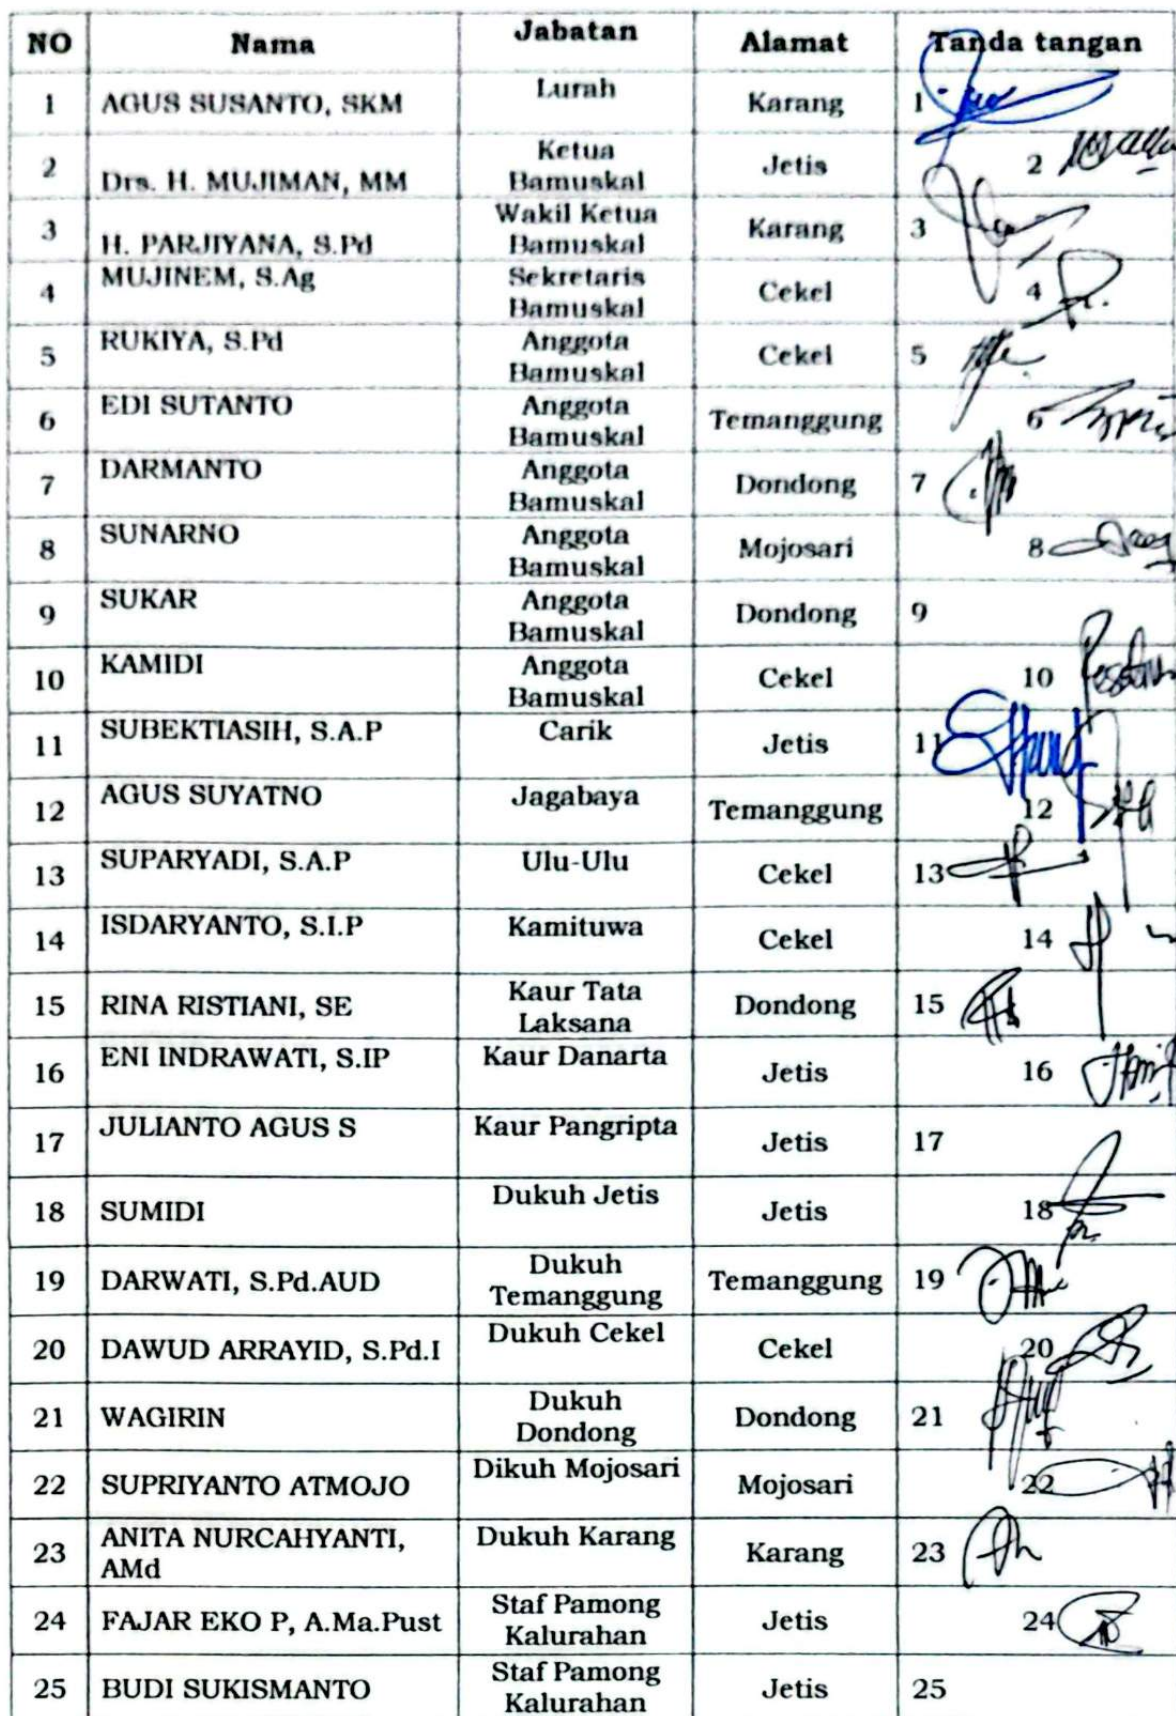 NO Nama Jabatan Alamat Tanda tangan
1 AGUS SUSANTO, SKM Lurah Karang 1
2 Drs. H. MUJIMAN, MM Ketua Bamuskal Jetis 2
3 H. PARJIYANA, S.Pd Wakil Ketua Bamuskal Karang 3
4 MUJINEM, S.Ag Sekretaris Bamuskal Cekel 4
5 RUKIYA, S.Pd Anggota Bamuskal Cekel 5
6 EDI SUTANTO Anggota Bamuskal Temanggung 6
7 DARMANTO Anggota Bamuskal Dondong 7
8 SUNARNO Anggota Bamuskal Mojosari 8
9 SUKAR Anggota Bamuskal Dondong 9
10 KAMIDI Anggota Bamuskal Cekel 10
11 SUBEKTIASIH, S.A.P Carik Jetis 11
12 AGUS SUYATNO Jagabaya Temanggung 12
13 SUPARYADI, S.A.P Ulu-Ulu Cekel 13
14 ISDARYANTO, S.I.P Kamituwa Cekel 14
15 RINA RISTIANI, SE Kaur Tata Laksana Dondong 15
16 ENI INDRAWATI, S.IP Kaur Danarta Jetis 16
17 JULIANTO AGUS S Kaur Pangripta Jetis 17
18 SUMIDI Dukuh Jetis Jetis 18
19 DARWATI, S.Pd.AUD Dukuh Temanggung Temanggung 19
20 DAWUD ARRAYID, S.Pd.I Dukuh Cekel Cekel 20
21 WAGIRIN Dukuh Dondong Dondong 21
22 SUPRIYANTO ATMOJO Dikuh Mojosari Mojosari 22
23 ANITA NURCAHYANTI, AMd Dukuh Karang Karang 23
24 FAJAR EKO P, A.Ma.Pust Staf Pamong Kalurahan Jetis 24
25 BUDI SUKISMANTO Staf Pamong Kalurahan Jetis 25